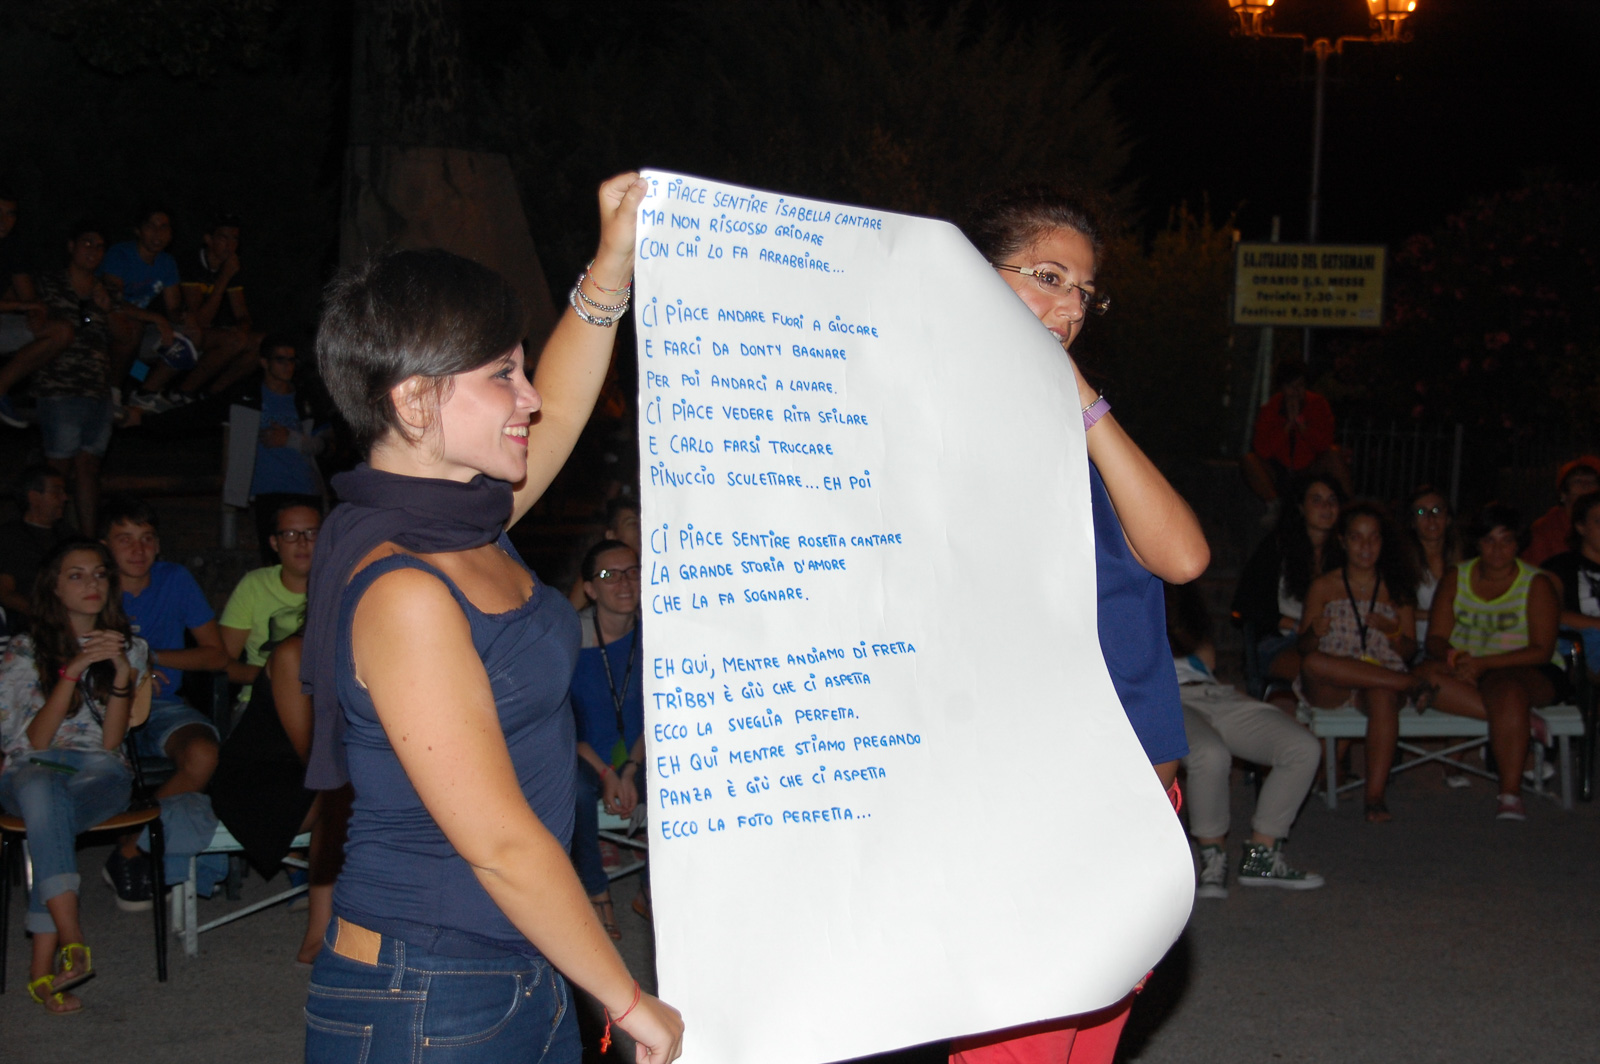 CI PIACE SENTIRE ISABELLA CANTARE
MA NON RISCOSSO GRIDARE
CON CHI LO FA ARRABBIARE...
CI PIACE ANDARE FUORI A GIOCARE
E FARCI DA DONTY BAGNARE
PER POI ANDARCI A LAVARE.
CI PIACE VEDERE RITA SFILARE
E CARLO FARSI TRUCCARE
PINUCCIO SCULETTARE... EH POI
CI PIACE SENTIRE ROSETTA CANTARE
LA GRANDE STORIA D'AMORE
CHE LA FA SOGNARE.
EH QUI, MENTRE ANDIAMO DI FRETTA
TRIBBY È GIÙ CHE CI ASPETTA
ECCO LA SVEGLIA PERFETTA.
EH QUI MENTRE STIAMO PREGANDO
PANZA È GIÙ CHE CI ASPETTA
ECCO LA FOTO PERFETTA...
SANTUARIO DEL GETSEMANI
ORARIO S.S. MESSE
Feriale: 7,30 - 19
Festivo: 9,30-11-19 -